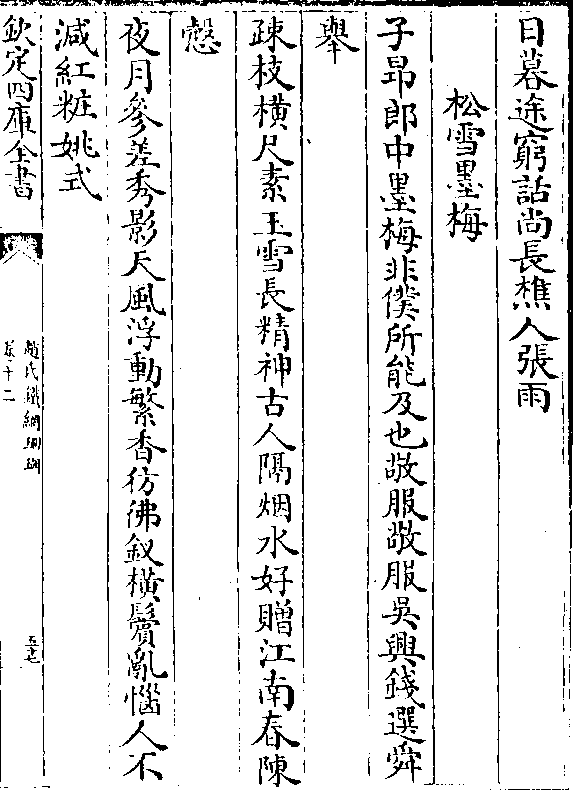 日暮途窮話尚長樵人張雨
松雪墨梅
子昻郎中墨梅非僕所能及也敬服敬服吳興錢選舜
舉
疎枝橫尺素玉雪長精神古人隔烟水好贈江南春陳
慤
夜月參差秀影天風浮動繁香彷彿釵橫鬢亂惱人不
減紅粧姚式
欽定四庫全書
趙氏鐵網珊瑚
卷十二